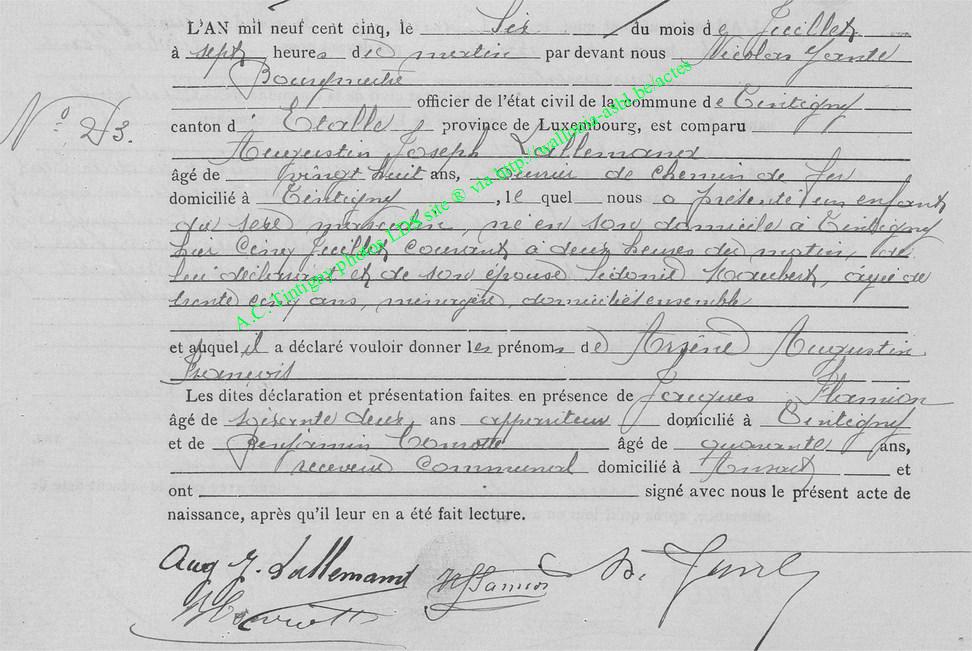 L'AN mil neuf cent cinq, le Six du mois de Juillet
à sept heures du matin par devant nous Nicolas
Bourgmestre
officier de l'état civil de la commune de Tintigny
N° 23.
canton d' Etalle province de Luxembourg, est comparu
Augustin Joseph Lallemand
âgé de vingt huit ans, de chemin de fer
domicilié à Tintigny, le quel nous a présenté un enfant
du sexe masculin, né en son domicile à Tintigny
hier cinq Juillet courant à deux heures du matin, de
lui déclarant et de son épouse Sidonie Maubert, âgée de
trente cinq ans, ménagère, domiciliés ensemble
et auquel il a déclaré vouloir donner les prénoms de Arsène Augustin
François
Les dites déclaration et présentation faites en présence de Jacques Flamion
âgé de soixante deux ans appariteur domicilié à Tintigny
et de Benjamin âgé de quarante ans,
receveur communal domicilié à Ansart et
ont signé avec nous le présent acte de
naissance, après qu'il leur en a été fait lecture.
Aug J. Lallemant
A.C. Tintigny photos LDS site ® via http://wallonia-asbl.be/actes